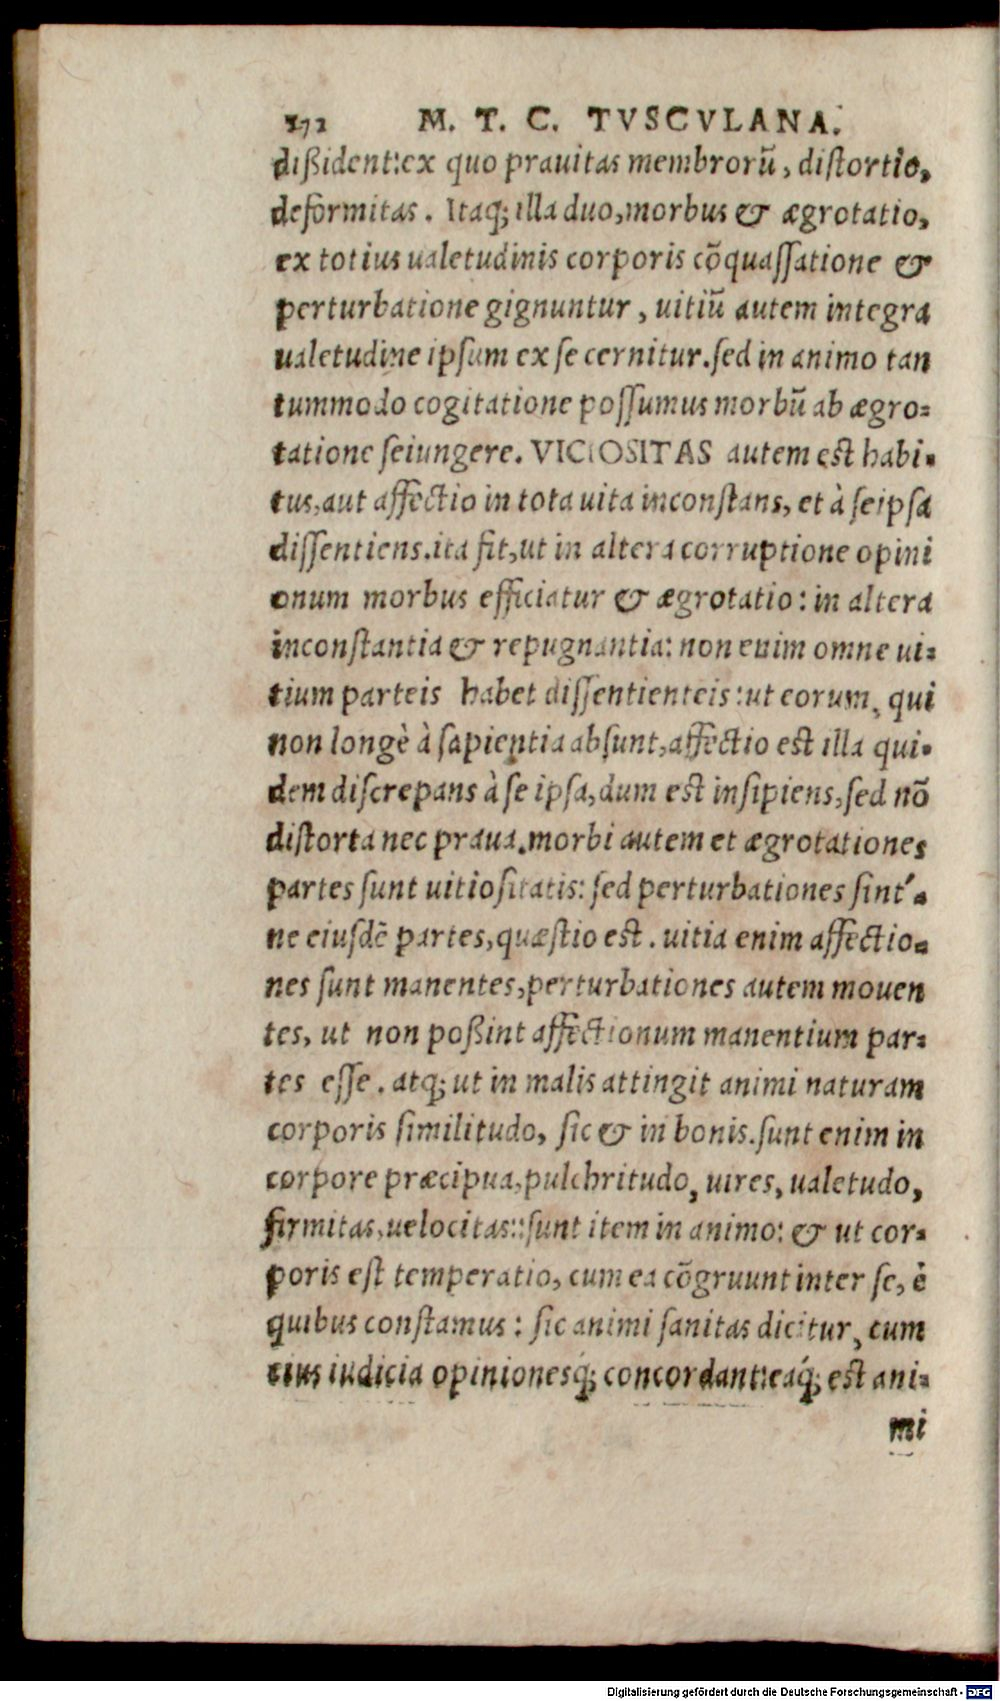 172 M. T. C. TVSCVLANA.
dißident: ex quo prauitas membrorũ, distortio,
deformitas. Itaq; illa duo, morbus & ægrotatio,
ex totius ualetudinis corporis cõquassatione &
perturbatione gignuntur, uitiũ autem integra
ualetudine ipsum ex se cernitur. sed in animo tan
tummodo cogitatione possumus morbũ ab ægro-
tatione seiungere. VICIOSITAS autem est habi-
tus, aut affectio in tota uita inconstans, et à seipsa
dissentiens. ita fit, ut in altera corruptione opini
onum morbus efficiatur & ægrotatio: in altera
inconstantia & repugnantia: non enim omne ui-
tium parteis habet dissentienteis: ut eorum, qui
non longè à sapientia absunt, affectio est illa qui-
dem discrepans à se ipsa, dum est insipiens, sed nõ
distorta nec praua. morbi autem et ægrotationes
partes sunt uitiositatis: sed perturbationes sint´-
ne eiusdẽ partes, quæstio est. uitia enim affectio-
nes sunt manentes, perturbationes autem mouen
tes, ut non poßint affectionum manentium par-
tes esse. atq; ut in malis attingit animi naturam
corporis similitudo, sic & in bonis. sunt enim in
corpore præcipua, pulchritudo, uires, ualetudo,
firmitas, uelocitas:: sunt item in animo: & ut cor-
poris est temperatio, cum ea cõgruunt inter se, è
quibus constamus: sic animi sanitas dicitur, cum
eius iudicia opinionesq́; concordant: eaq́; est ani-
mi
Digitalisierung gefördert durch die Deutsche Forschungsgemeinschaft - DFG